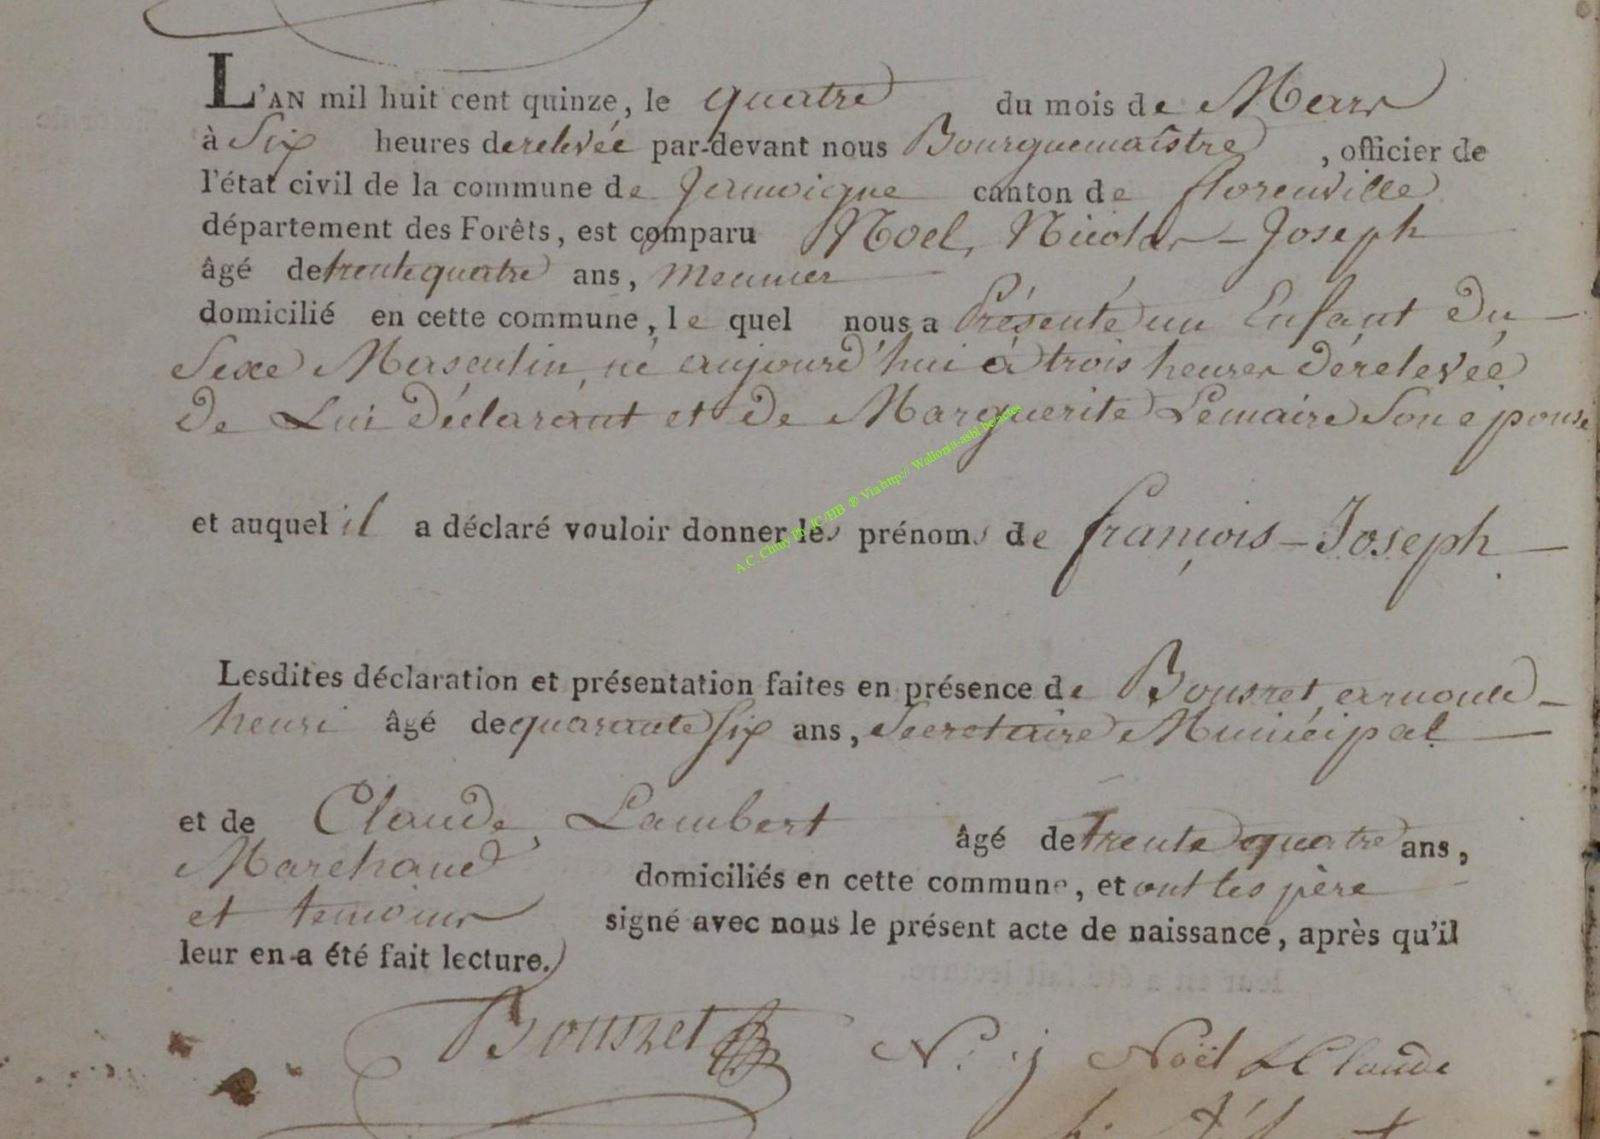 L'AN mil huit cent quinze, le quatre du mois de Mars
à Six heures de relevée par-devant nous Bourguemaistre, officier de
l'état civil de la commune de Jamoigne canton de florenville
département des Forêts, est comparu Noel, Nicolas-Joseph
âgé de trente quatre ans, Meunier
domicilié en cette commune, le quel nous a Présenté un Enfant Du
Sexe Masculin, né aujourd'hui à trois heures dérelevée
De Lui Déclarant et De Marguerite Lemaire Son epouse
et auquel il a déclaré vouloir donner les prénoms de françois-Joseph
A.C. Chiny Ph. JC/HB ® Via http:// Wallonia-asbl.be/actes
Lesdites déclaration et présentation faites en présence de Bousret, arnould
henri âgé de quarante Six ans, Secretaire Municipal
et de Claude, Lambert âgé de Trente quatre ans,
Marchand domiciliés en cette commune, et ont les père
et temoins signé avec nous le présent acte de naissance, après qu'il
leur en a été fait lecture.
Bousret N. j Noël L Claude